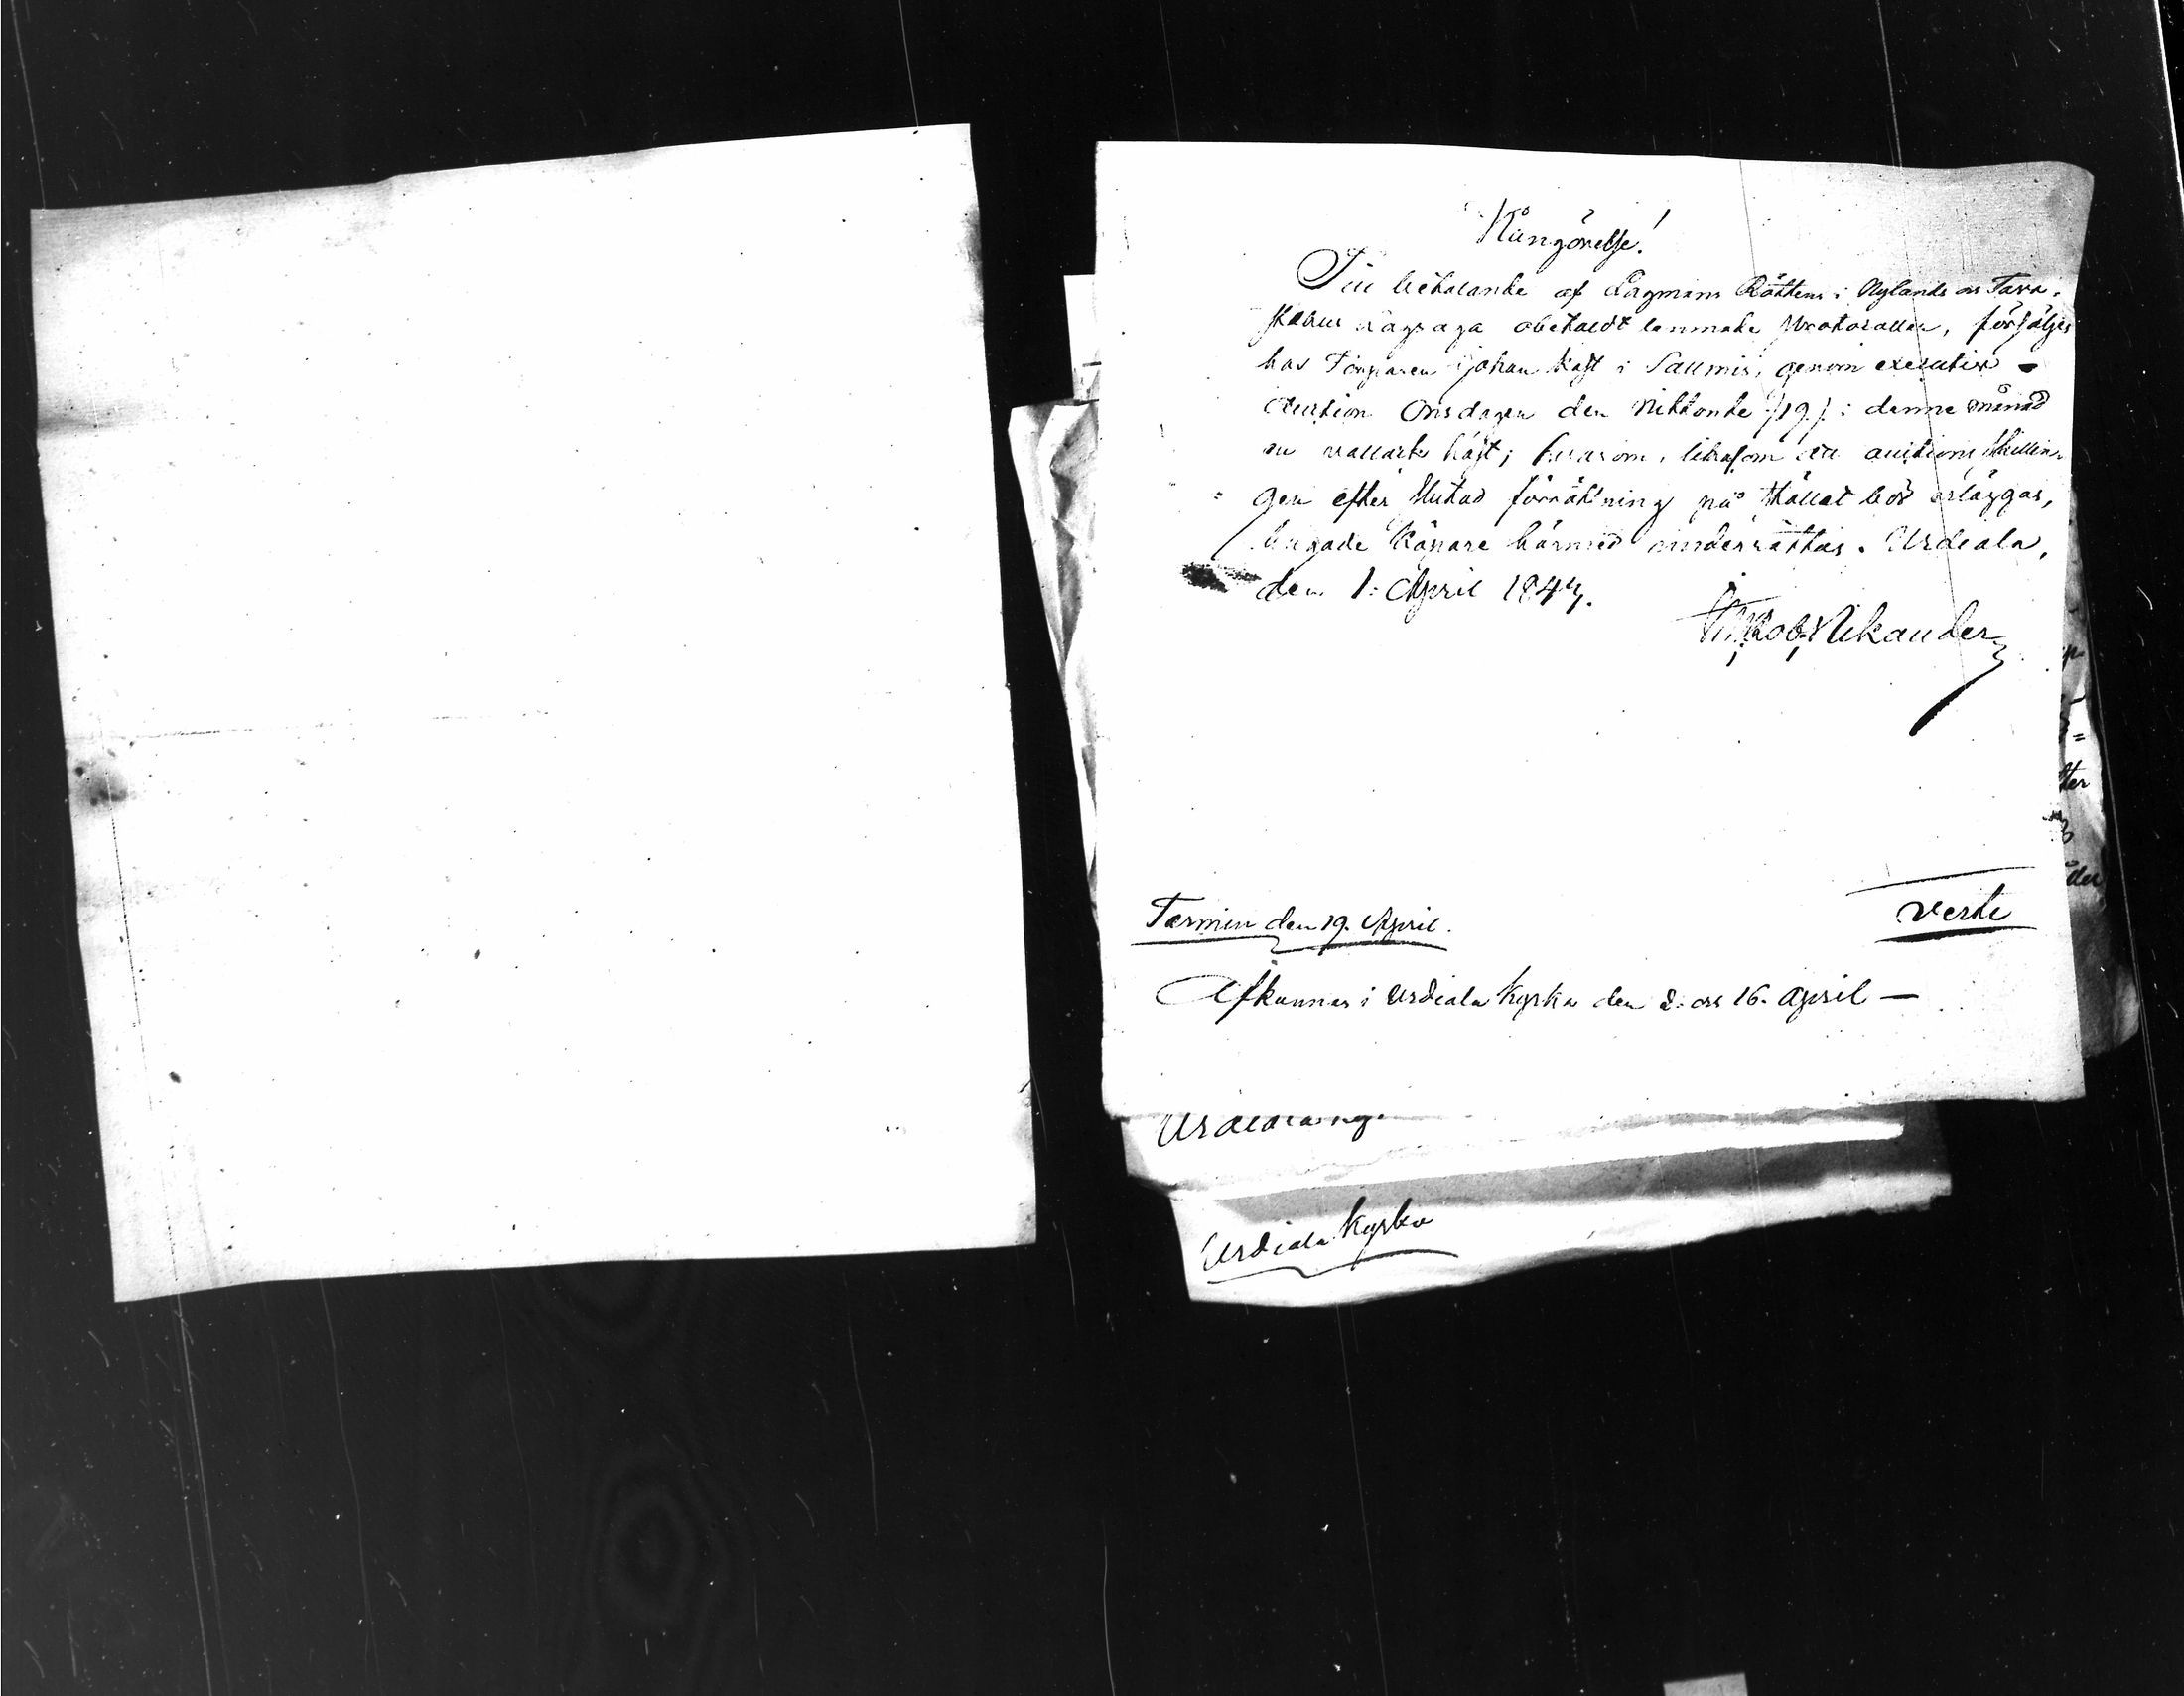 Kungörelse!
Till betalande af Lagmans Rättens i Nylands och Tava-
stehus Lagsaga obetaldt lemnade Protocoller, försäljes
hos Torparen Johan Kast i Saumis, genom executiv
Auction Onsdagen den Nittonde /:19:/ i denne månad
en vallack häst; hvarom, likasom att auctions skillin-
gen efter slutad förrättning på stället bör erläggas,
hugade Köpare härmed underrättas. Urdiala,
den 1. April 1844.
Jakob Nikander
Termin den 19. April.
verte
Afkunnas i Urdiala Kyrka den 2. och 16. April —
Urdiala
Urdiala Kyrka